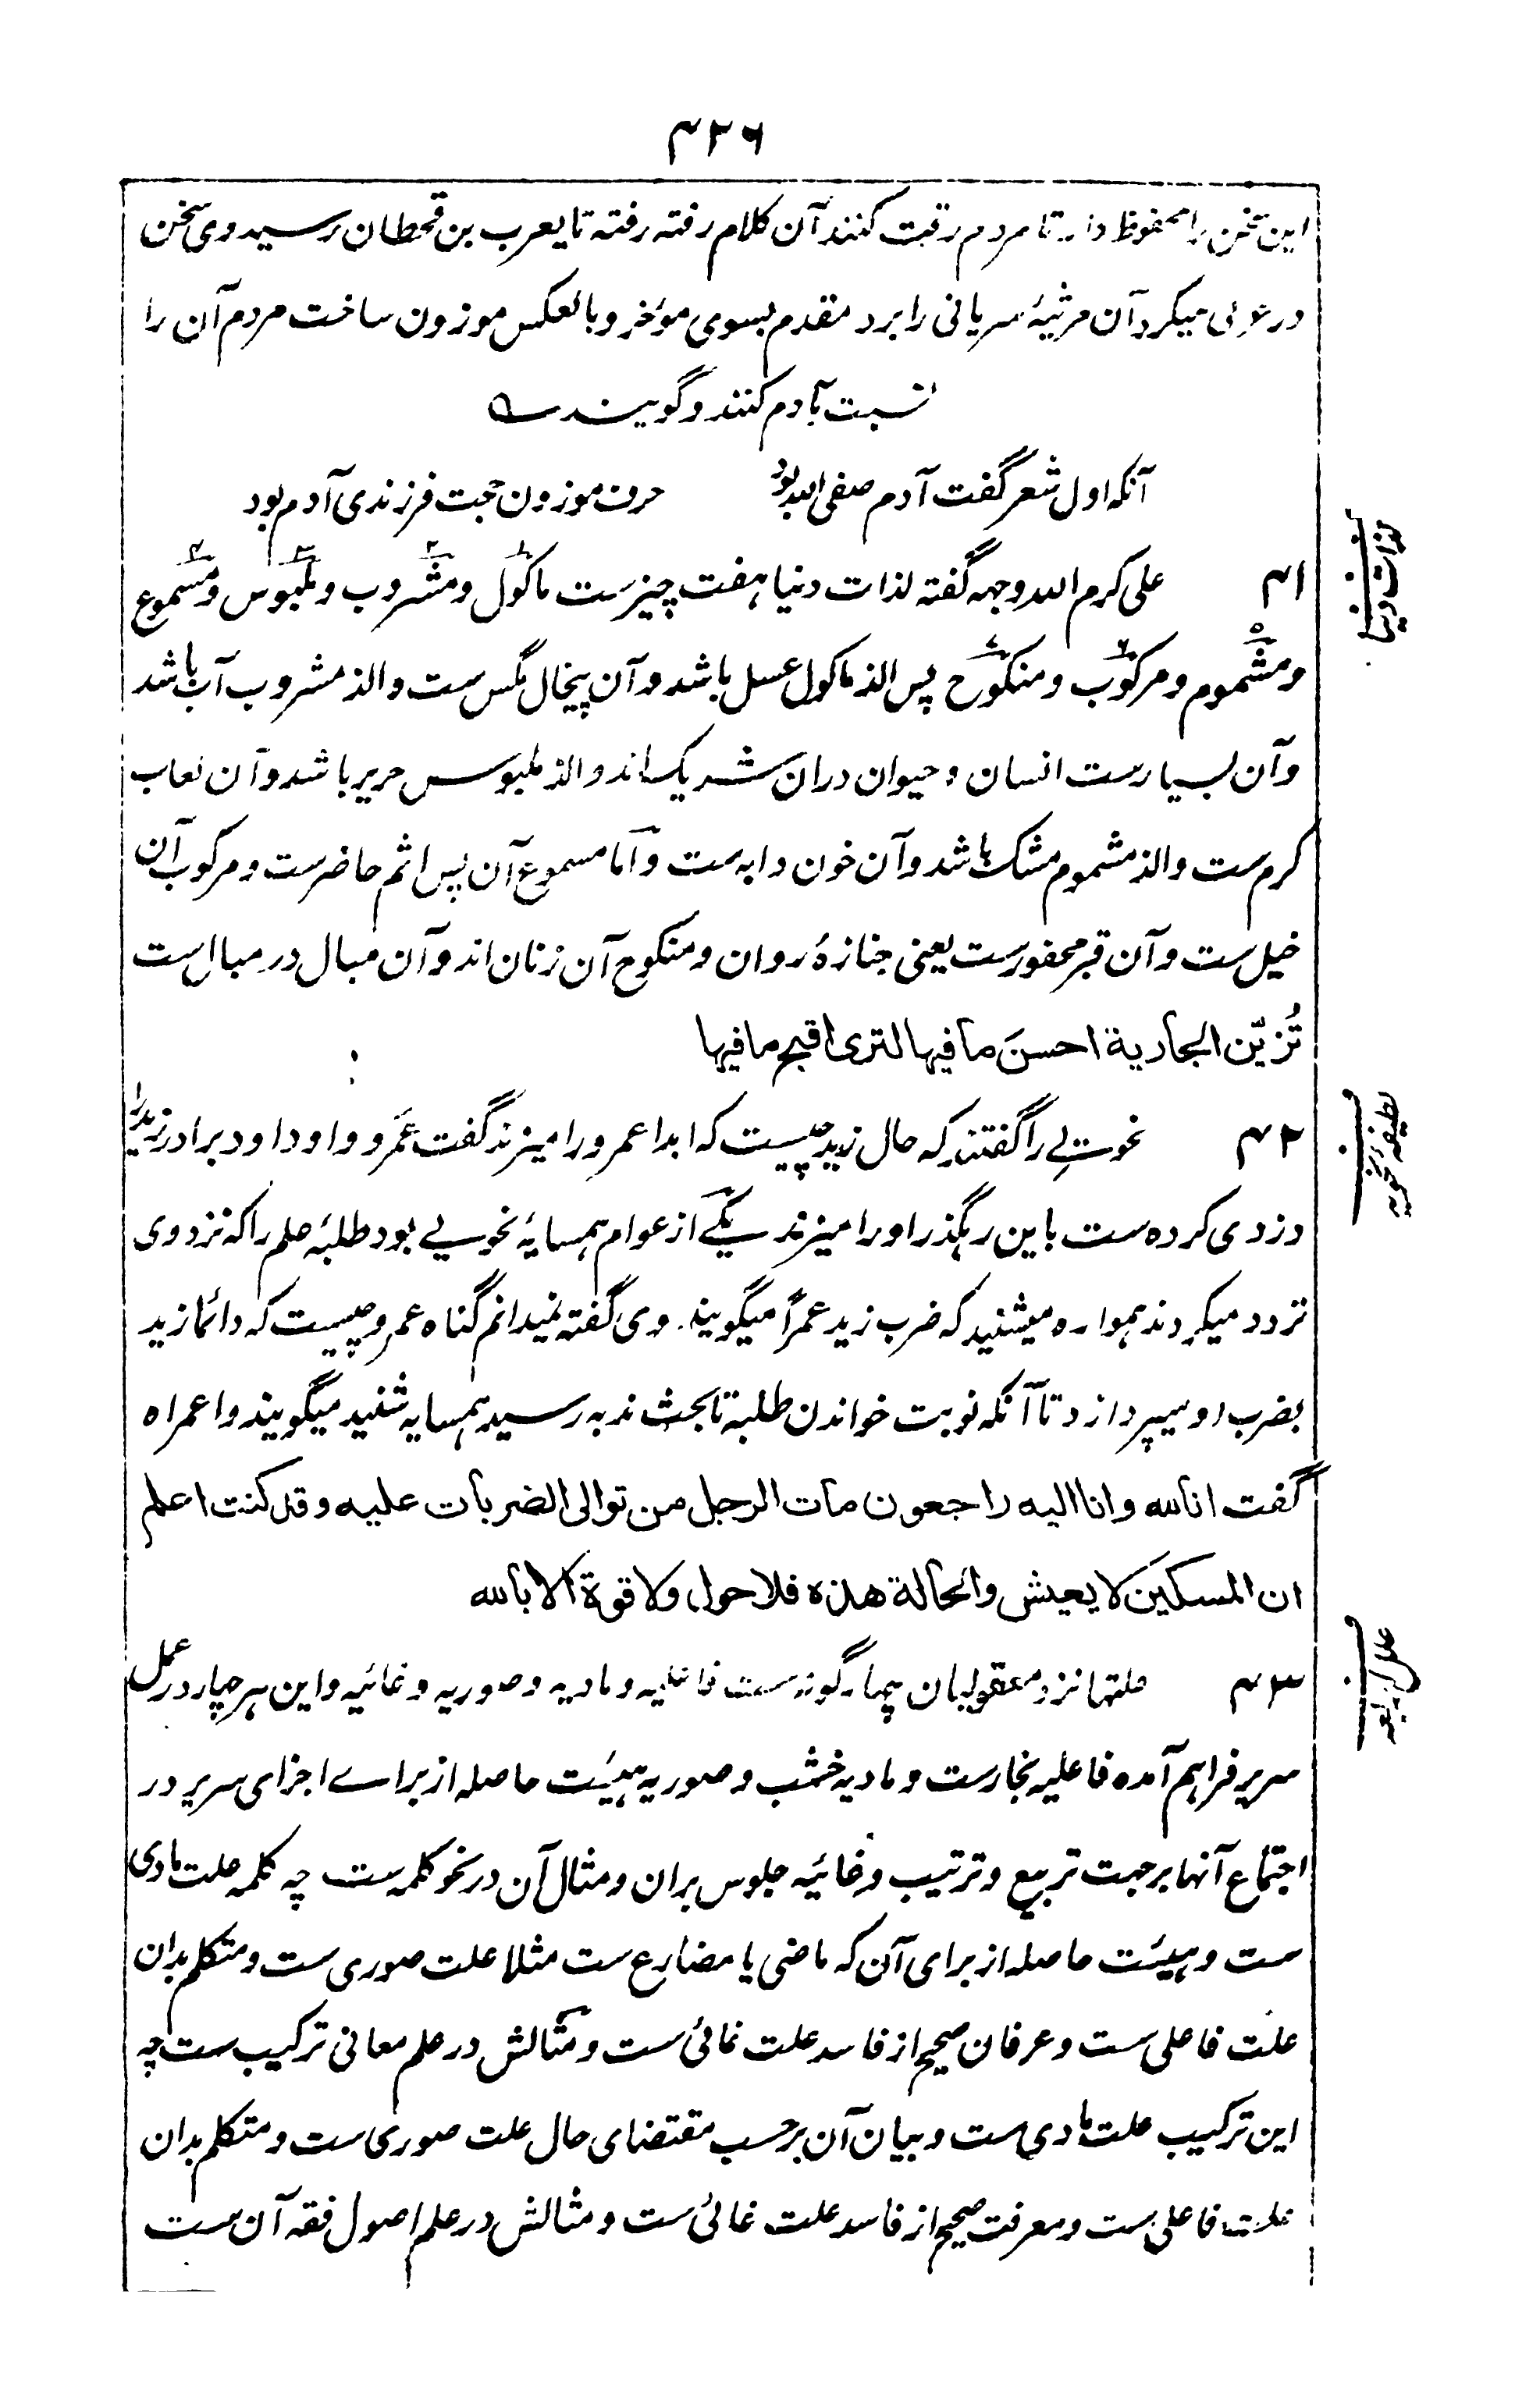 ۴۲۶
این سخن را محفوظ دار تا مردم رقت کنند آن کلام رفته رفته تا یعرب بن قحطان رسید وی سخن
در عربی میکرد آن مرثیۀ سریانی را برد مقدم بسوی مؤخر و بالعکس موزون ساخت مردم آن را
نسبت بآدم کنند و گویند
آنکه اول شعر گفت آدم صفی الله بود حرف موزون حجت فرزندی آدم بود
۴۱ علی کرم الله وجهه گفته لذات دنیا هفت چیزست ماکول و مشروب و ملبوس و مسموع
لذات دنیا
و مشموم و مرکوب و منکوح پس الذ ماکول عسل باشد و آن پیخال مگس ست و الذ مشروب آب باشد
و آن بسیارست انسان و حیوان دران شریک اند و الذ ملبوس حریر باشد و آن لعاب
کرم ست و الذ مشموم مشک باشد و آن خون دابه ست و اما مسموع آن پس اثم حاضرست و مرکوب آن
خیل ست و آن قبر محفورست یعنی جنازۀ روان و منکوح آن زنان اند و آن مبال در مبال ست
تُزیّن الجاریة احسنَ ما فیها لتری اقبح ما فیها
۴۲ نحویی را گفتند که حال زید چیست که ابدا عمرو را میزند گفت عمرو واو داود برادر زید را
لطیفه نحویه
دزدی کرده ست باین رهگذر او را میزند یکی از عوام همسایۀ نحویی بود طلبۀ علم را که نزد وی
تردد میکردند همواره میشنید که ضرب زید عمراً میگویند وی گفته نمیدانم گناه عمرو چیست که دائما زید
بضرب او میپردازد تا آنکه نوبت خواندن طلبه تا بحث ندبه رسید همسایه شنید میگویند واعمراه
گفت انا لله و انا الیه راجعون مات الرجل من توالی الضربات علیه و قد کنت اعلم
ان المسکین لا یعیش والحالة هذه فلا حول ولا قوة الا بالله
۴۳ علتها نزد معقولیان چهار گونه ست فاعلیه و مادیه و صوریه و غائیه و این هر چهار در عمل
علل اربعه
سریر فراهم آمده فاعلیه نجارست و مادیه خشب و صوریه هیئت حاصله از برای اجزای سریر در
اجتماع آنها بر جهت تربیع و ترتیب و غائیه جلوس بران و مثال آن در نحو کلمه ست چه کلمه علت مادی
ست و هیئت حاصله از برای آن که ماضی یا مضارع ست مثلا علت صوری ست و متکلم بدان
علت فاعلی ست و عرفان صحیح از فاسد علت غائی ست و مثالش در علم معانی ترکیب ست چه
این ترکیب علت مادی ست و بیان آن بر حسب مقتضای حال علت صوری ست و متکلم بدان
علت فاعلی ست و معرفت صحیح از فاسد علت غائی ست و مثالش در علم اصول فقه آن ست